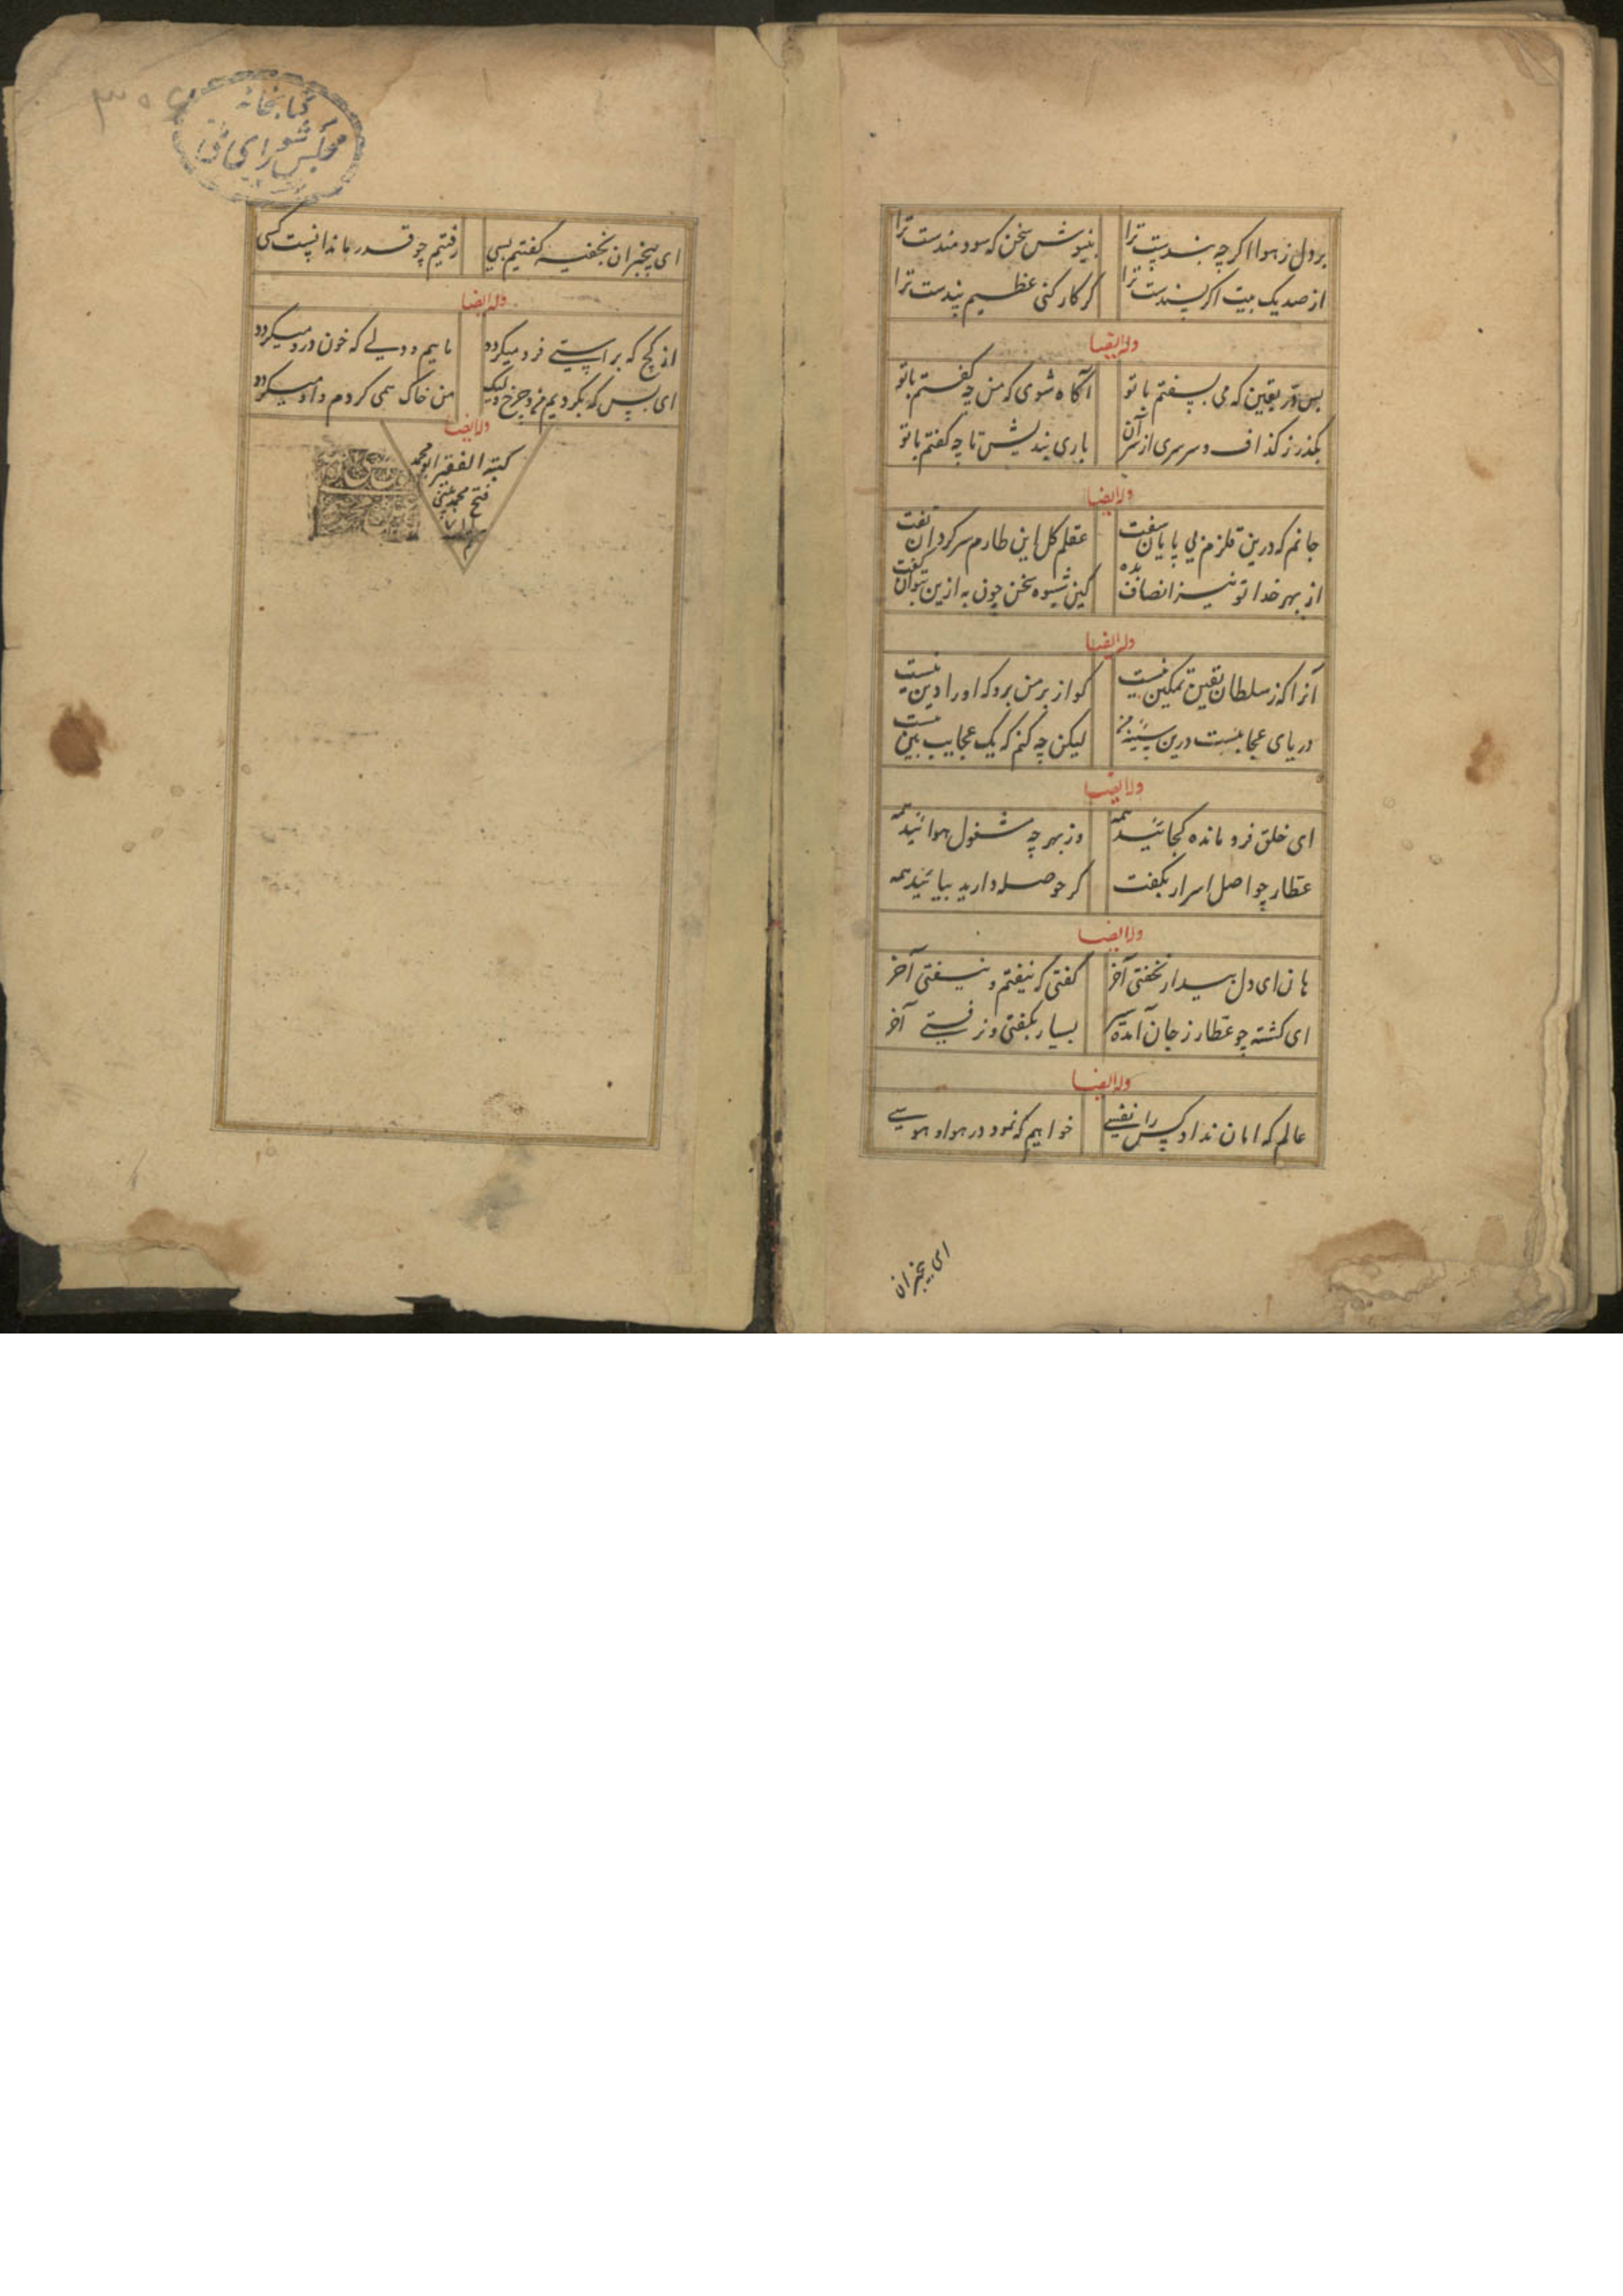 بر دل ز هوا اگر چه بندیست ترا بنیوش سخن که سودمندست ترا
از صد یک بیت اگر پسندست ترا گر کار کنی عظیم پندست ترا
وله ایضا
بس در یقین که می بسفتم با تو آگاه شوی که من چه گفتم با تو
بگذر ز گذاف و سرسری از سر آن باری بندیش تا چه گفتم با تو
وله ایضا
جانم که درین قلزم بی پایان سفت عقلم کل این طارم سرگردان تفت
از بهر خدا تو نیز انصاف بده کین شیوه سخن چون به ازین بتوان گفت
وله ایضا
آنرا که ز سلطان یقین تمکین نیست گو از بر من برو که او را دین نیست
دریای عجایبست درین سینه من لیکن چه کنم که یک عجایب بین نیست
وله ایضا
ای خلق فرو مانده کجائید همه وز بهر چه مشغول هوائید همه
عطار چو اصل اسرار بگفت گر حوصله دارید بیائید همه
وله ایضا
هان ای دل بیدار نخفتی آخر گفتی که نیفتم و نیفتی آخر
ای گشته چو عطار ز جان آمده سیر بسیار بگفتی و نرفتی آخر
وله ایضا
عالم که امان نداد کس را نفسی خوابیم که نمود در هوا و هوسی
ای بیخبران
کتابخانه
مجلس شورای ملی
ای بیخبران نخفته گفتیم بسی رفتیم چو قدر ما ندانست کسی
وله ایضا
از کج که براستی فرو میگردد ماییم و دلی که خون درو میگردد
ای بس که بگردیم من و چرخ ولیک من خاک همی گردم و او میگردد
وله ایضا
کتبه الفقیر ابو محمد
فتح محمد